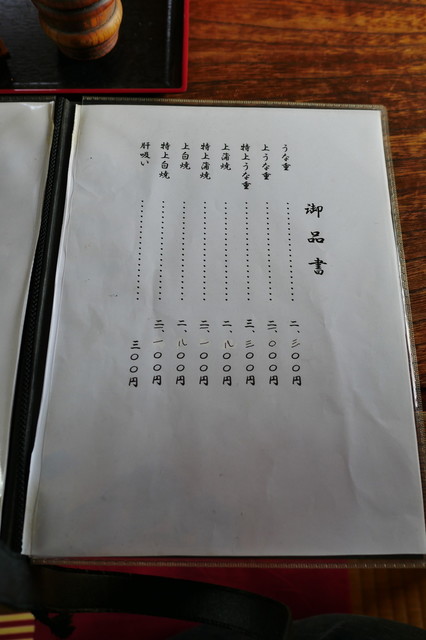 御品書
うな重 ……………… 二、三〇〇円
上うな重 ……………… 三、〇〇〇円
特上うな重 ……………… 三、三〇〇円
上蒲焼 ……………… 二、八〇〇円
特上蒲焼 ……………… 三、一〇〇円
上白焼 ……………… 二、八〇〇円
特上白焼 ……………… 三、一〇〇円
肝吸い ……………… 三〇〇円